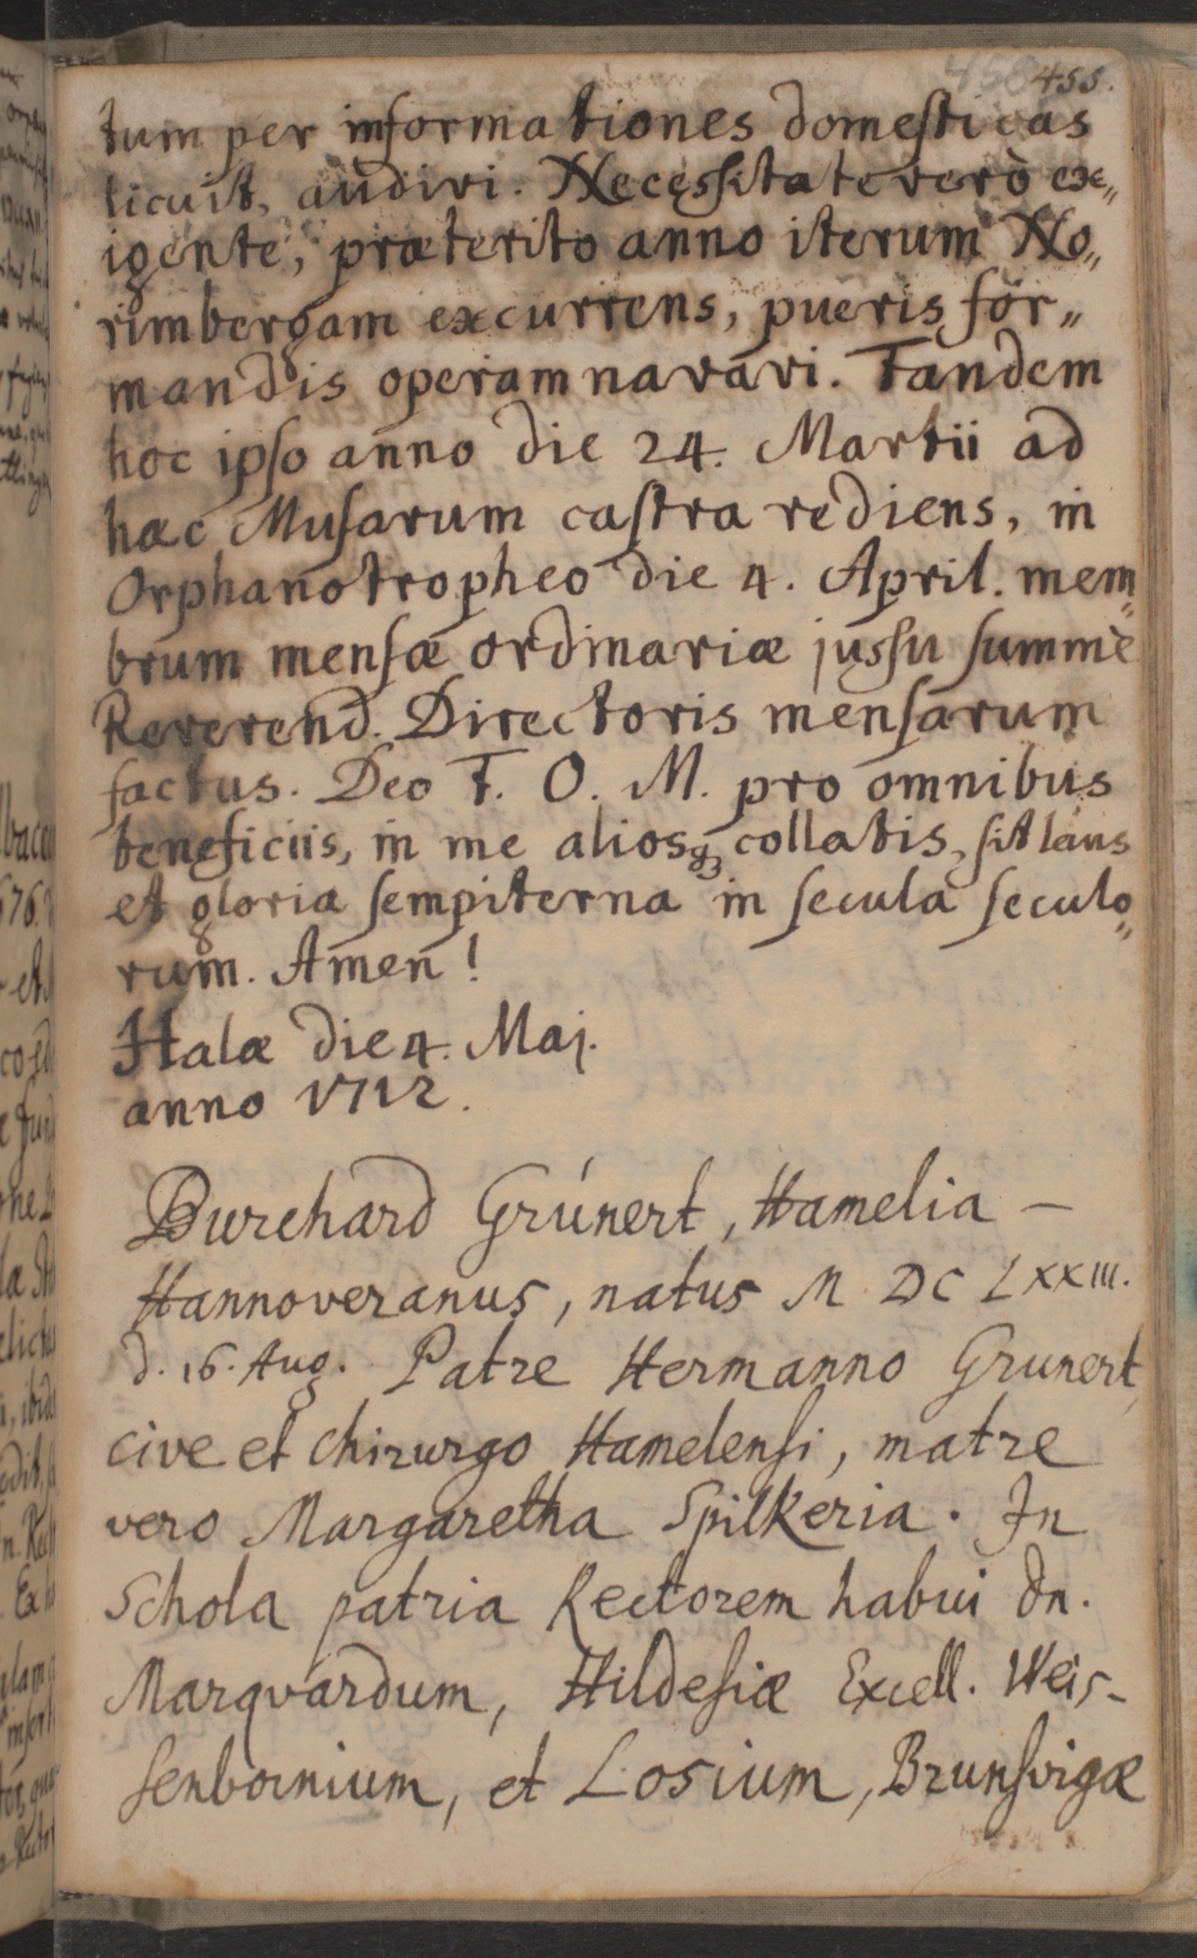 455.
tum per informationes domesticas
licuit, audivi. Necessitate verò ex„
igente, præterito anno iterum No„
rimbergam excurrens, pueris for„
mandis operam navavi. Tandem
hoc ipso anno die 24. Martii ad
hæc Musarum castra rediens, in
Orphanotropheo die 4. April. mem„
brum mensæ ordinariæ jussu summè
Reverend. Directoris mensarum
factus. Deo T. O. M. pro omnibus
beneficiis, in me aliosq; collatis, sit laus
et gloria sempiterna in secula seculo„
rum. Amen!
Halæ die 4. Maj.
anno 1712.
Burchard Grúnert, Hamelia –
Hannoveranus, natus M DC LXXIII.
d. 16. Aug. Patre Hermanno Grunert,
cive et chirurgo Hamelensi, matre
vero Margaretha Spilkeria. In
Schola patria Rectorem habui dn.
Marqvardum, Hildesiæ Excell. Weis-
senbornium, et Losium, Brunsvigæ